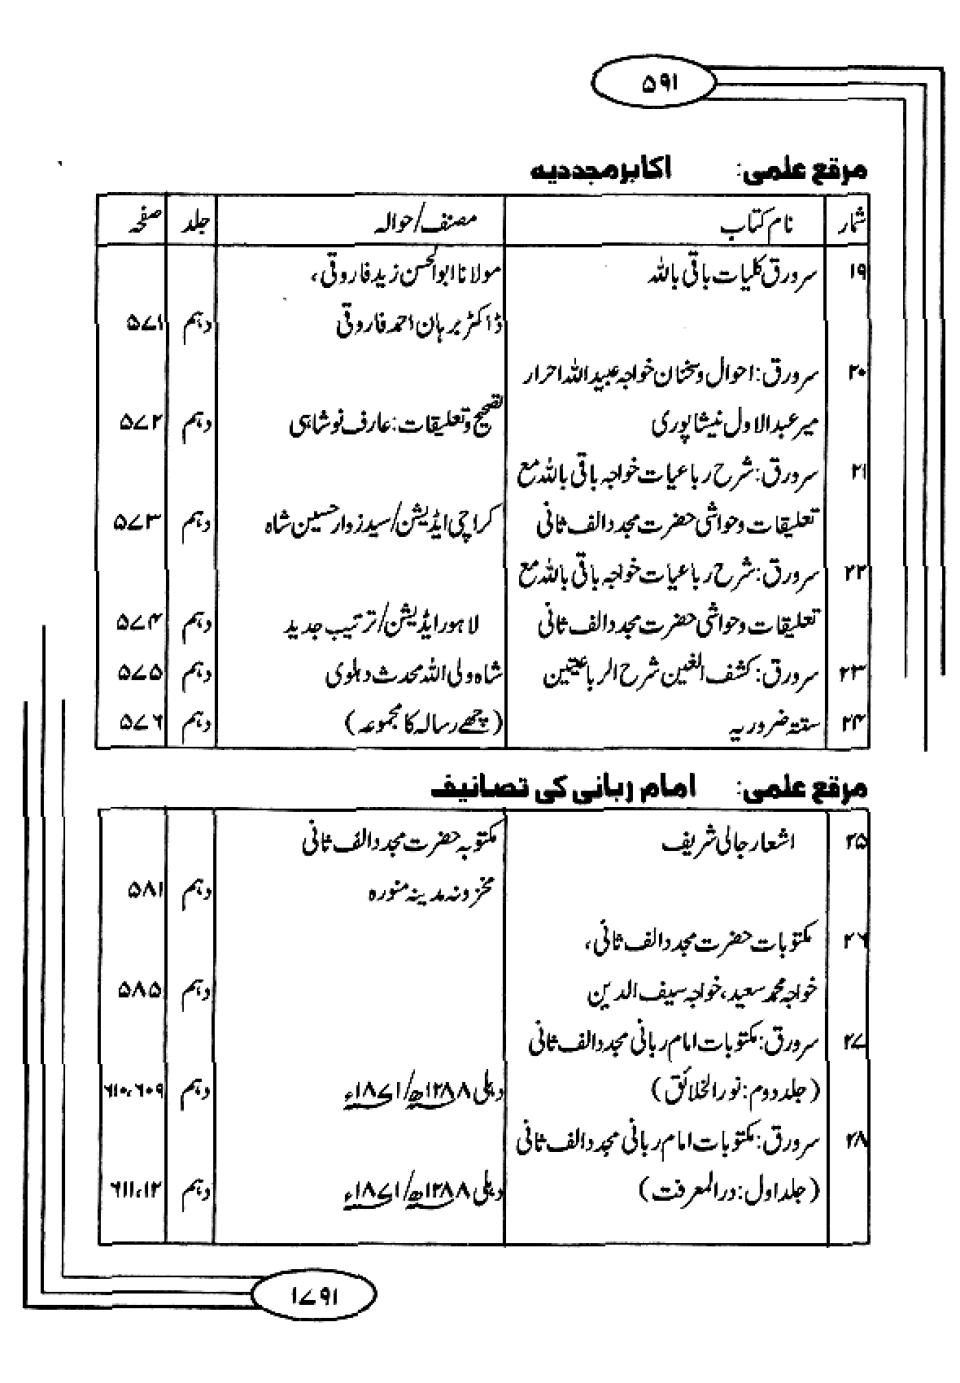 ۵۹۱
مرقع علمی: اکابر مجددیہ
شمار نام کتاب مصنف/حوالہ جلد صفحہ
۱۹ سرورق کلیات باقی باللہ مولانا ابوالحسن زید فاروقی،
ڈاکٹر برہان احمد فاروقی دہم ۵۷۱
۲۰ سرورق: احوال و سخنان خواجہ عبید اللہ احرار
میر عبدالاول نیشاپوری تصحیح و تعلیقات: عارف نوشاہی دہم ۵۷۲
۲۱ سرورق: شرح رباعیات خواجہ باقی باللہ مع
تعلیقات و حواشی حضرت مجدد الف ثانی کراچی ایڈیشن/سید زوار حسین شاہ دہم ۵۷۳
۲۲ سرورق: شرح رباعیات خواجہ باقی باللہ مع
تعلیقات و حواشی حضرت مجدد الف ثانی لاہور ایڈیشن/ترتیب جدید دہم ۵۷۴
۲۳ سرورق: کشف الغین شرح الرباعیتین شاہ ولی اللہ محدث دہلوی دہم ۵۷۵
۲۴ ستتہ ضروریہ (چھے رسالہ کا مجموعہ) دہم ۵۷۶
مرقع علمی: امام ربانی کی تصانیف
۲۵ اشعار جالی شریف مکتوبہ حضرت مجدد الف ثانی
مخزونہ مدینہ منورہ دہم ۵۸۱
۲۶ مکتوبات حضرت مجدد الف ثانی،
خواجہ محمد سعید، خواجہ سیف الدین دہم ۵۸۵
۲۷ سرورق: مکتوبات امام ربانی مجدد الف ثانی
(جلد دوم: نور الخلائق) دہلی ۱۲۸۸ھ/۱۸۷۱ء دہم ۶۱۰،۶۰۹
۲۸ سرورق: مکتوبات امام ربانی مجدد الف ثانی
(جلد اول: در المعرفت) دہلی ۱۲۸۸ھ/۱۸۷۱ء دہم ۶۱۱،۱۲
۱۷۹۱